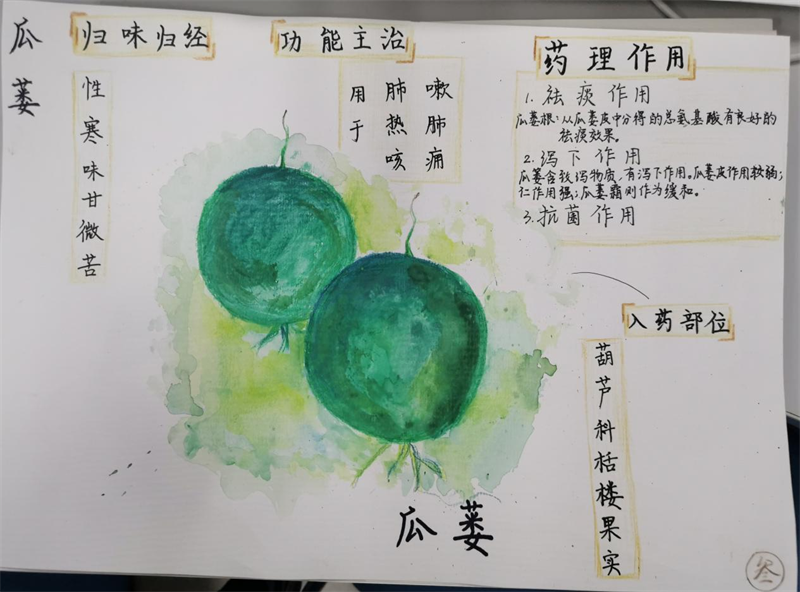 瓜蒌
归味归经
性寒味甘微苦
功能主治
用于
肺热咳
嗽肺痈
药理作用
1. 祛痰作用
瓜蒌根:从瓜蒌皮中分得的总氨基酸有良好的
祛痰效果。
2. 泻下作用
瓜蒌含致泻物质,有泻下作用。瓜蒌皮作用较弱;
仁作用强;瓜蒌霜则作为缓和。
3.抗菌作用
入药部位
葫芦科栝楼果实
瓜蒌